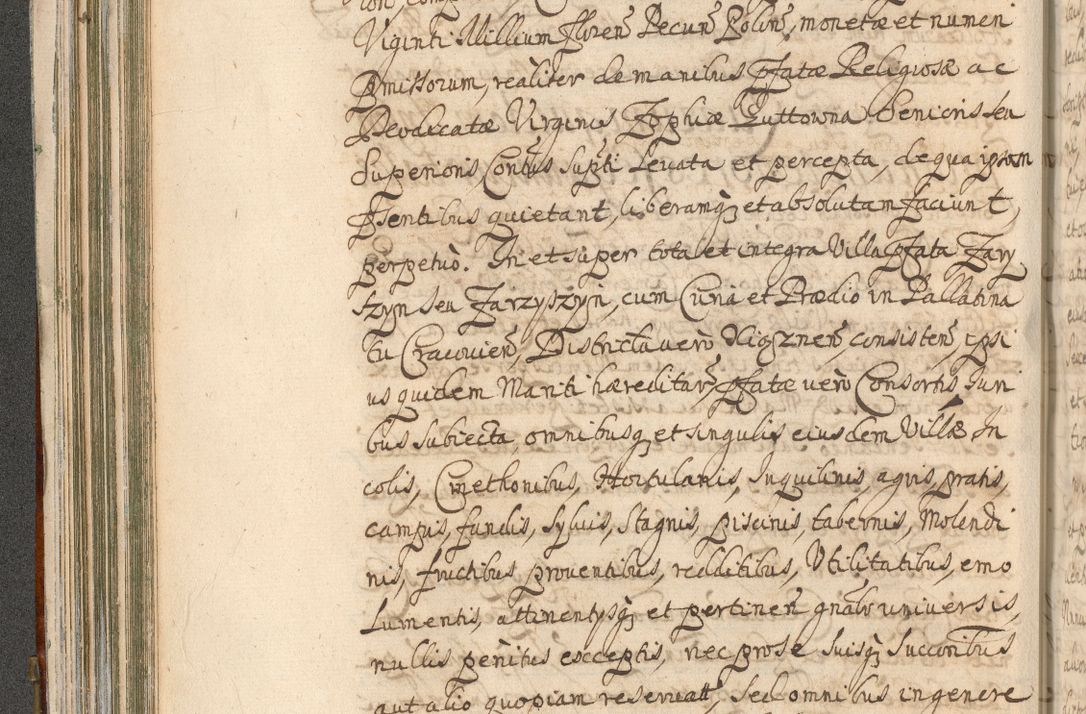 Viginti Millium Floren Pecun Polon, monetæ et numeri
Pmissorum, realiter de manibus Pfatæ Religiosæ ac
Deodicatæ Virginis Zophiæ Luttowna Senioris seu
Superioris, Contus supti Levata et percepta, de qua ipsam
Psentibus quietant, liberamq et absolutam faciunt,
perpetuò. In et super tota et integra Villa pfata Zary
szyn seu Zarzyszyn, cum Curia et Prædio in Pallatina
tu Cracovien, Districta verò Xiąznen, consisten, ipsi
us quidem Mariti hæreditar, pfatæ verò Consortis Iuri
bus subiecta, omnibusq et singulis eiusdem Villæ In
colis, Cmethonibus, Hortulanis, Inquilinis, agris, pratis,
campis, fundis, sylvis, stagnis, piscinis, tabernis, Molendi
nis, fructibus, proventibus, redditibus, Utilitatibus, emo
lumentis, attinentysq et pertinen gnalr universis,
nullis penitus exceptis, nec pro se suisq Succoribus
aut alio quopiam reservatt, sed omnibus in genere